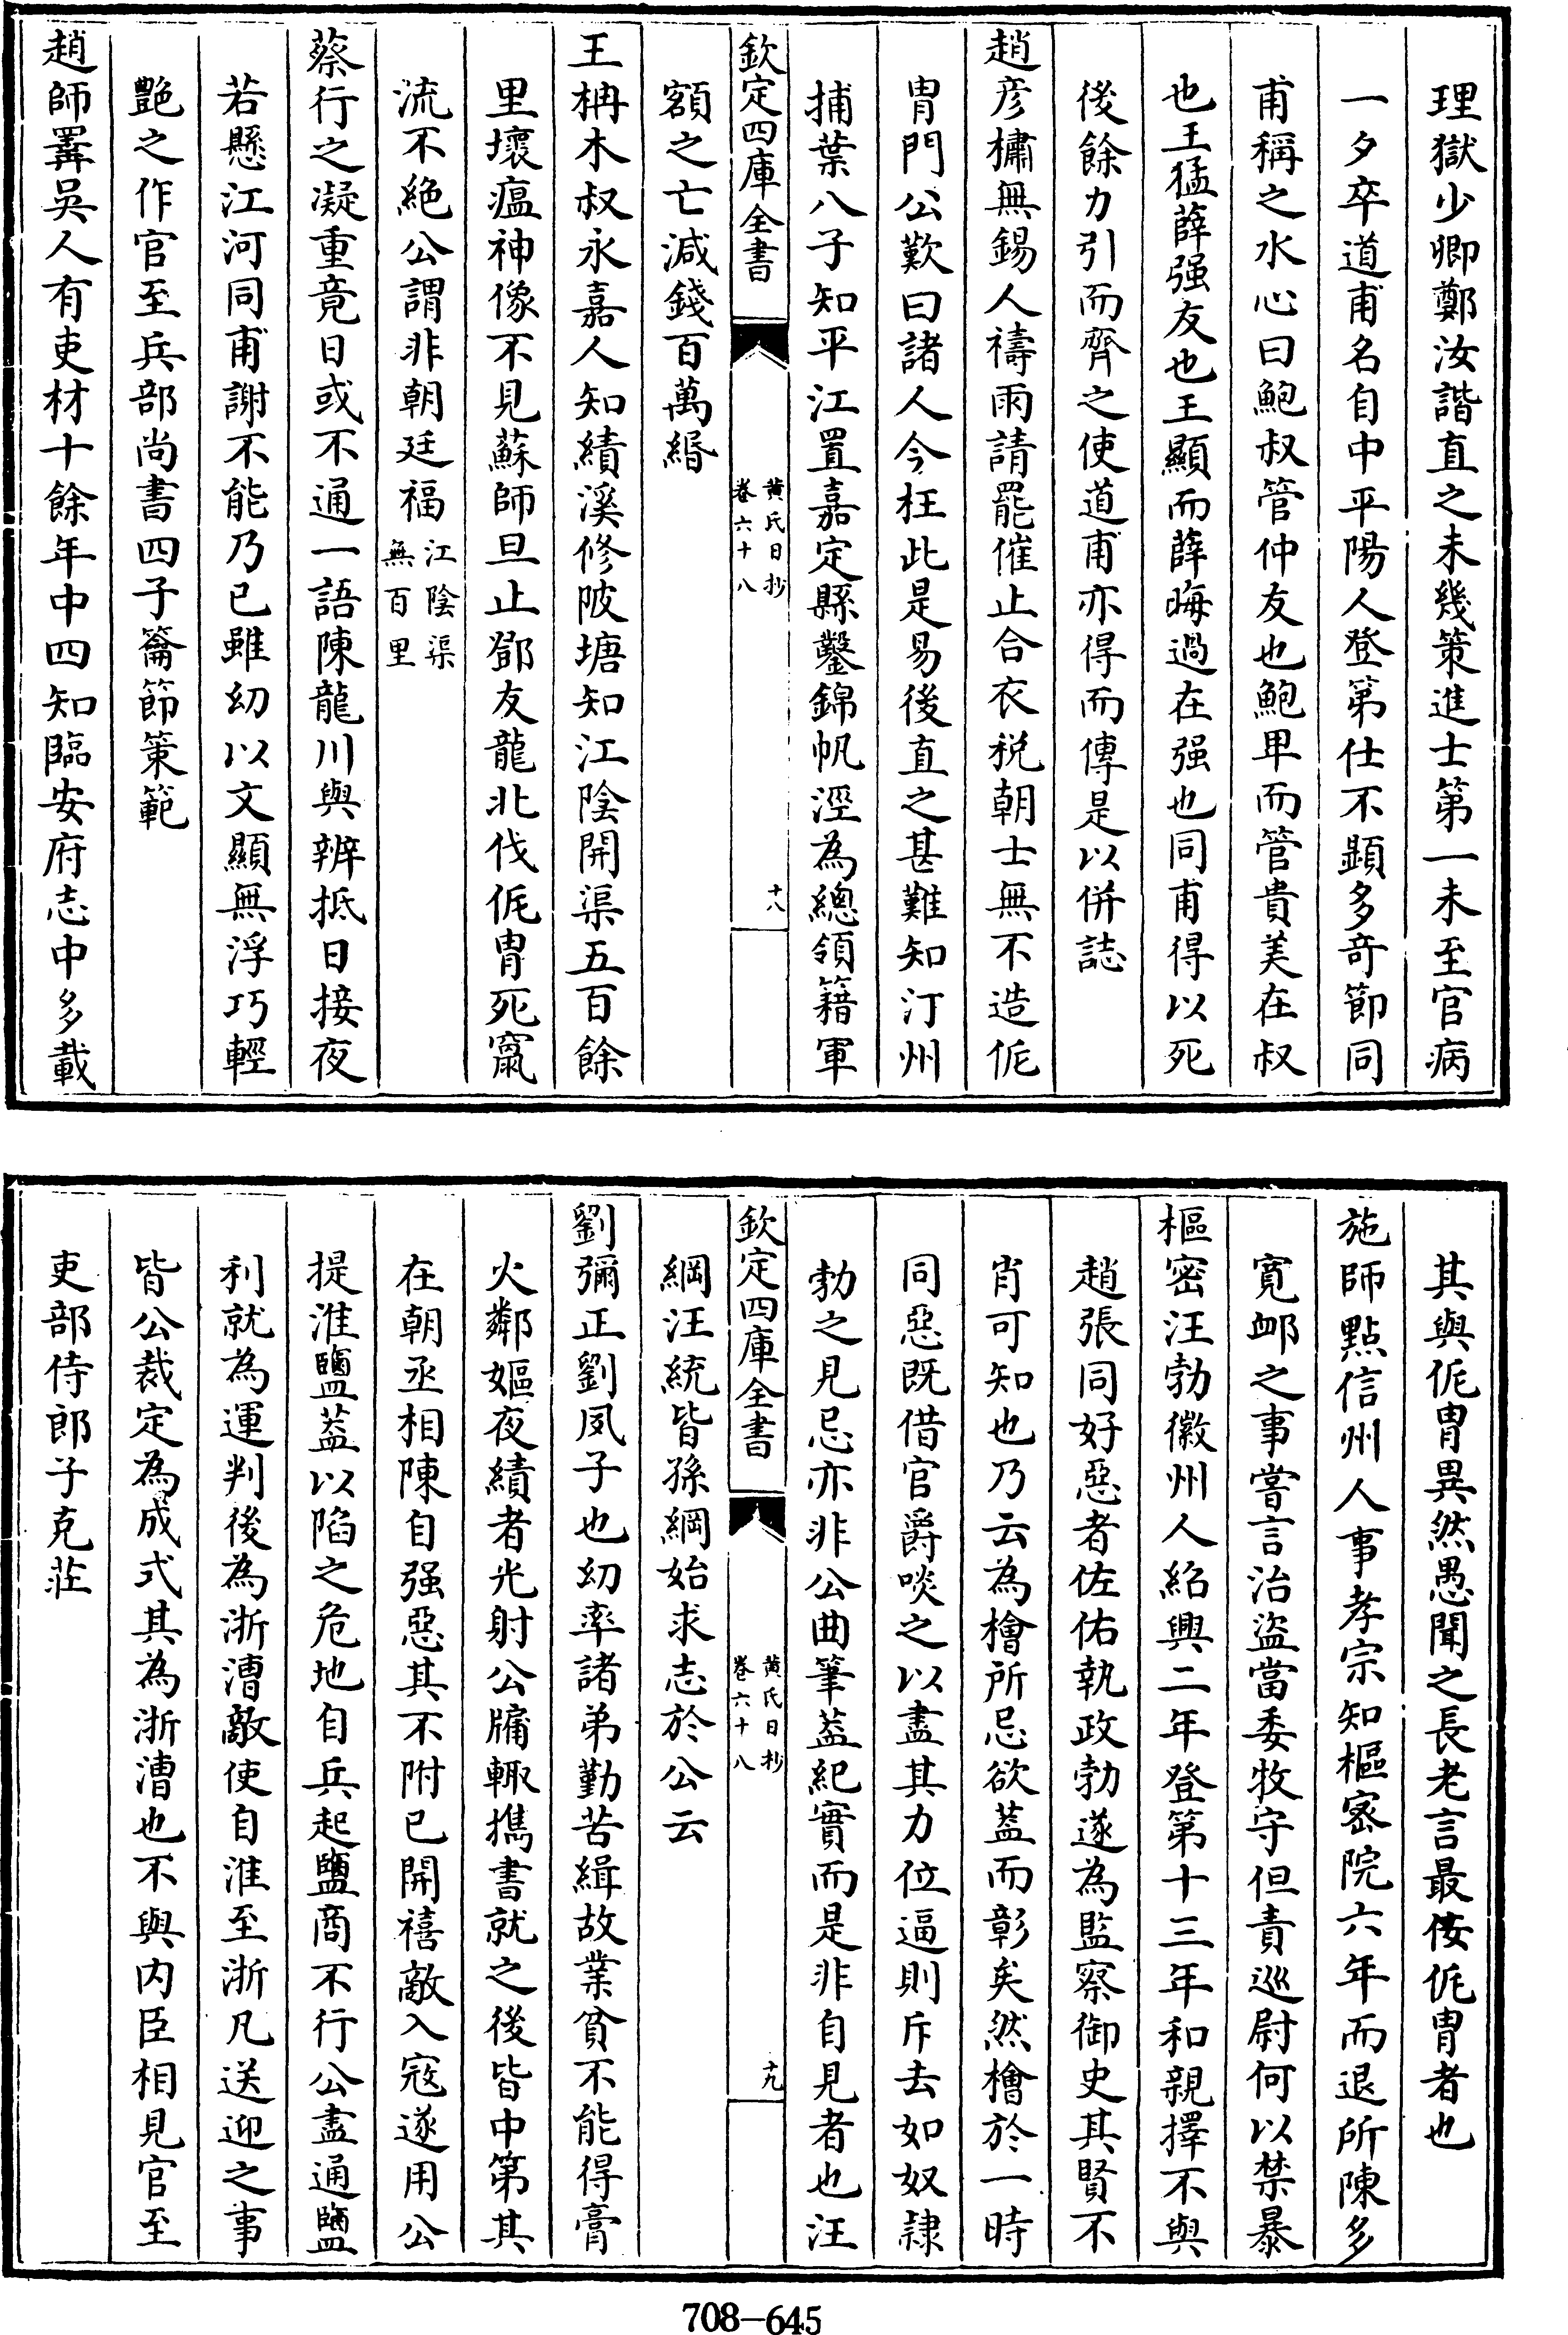 理獄少卿鄭汝諧直之未幾策進士第一未至官病
一夕卒道甫名自中平陽人登第仕不顯多奇節同
甫稱之水心曰鮑叔管仲友也鮑卑而管貴美在叔
也王猛薛强友也王顯而薛晦過在强也同甫得以死
後餘力引而齊之使道甫亦得而傳是以併誌
趙彦橚無錫人禱雨請罷催止合衣税朝士無不造侂
胄門公歎曰諸人今枉此是易後直之甚難知汀州
捕葉八子知平江置嘉定縣鑿錦帆涇為總領籍軍
欽定四庫全書
黄氏日抄
卷六十八
十八
額之亡減錢百萬緡
王柟木叔永嘉人知績溪修陂塘知江陰開渠五百餘
里壞瘟神像不見蘇師旦止鄧友龍北伐侂胄死竄
流不絶公謂非朝廷福江陰渠無百里
蔡行之凝重竟日或不通一語陳龍川與辨抵日接夜
若懸江河同甫謝不能乃已雖幼以文顯無浮巧輕
艷之作官至兵部尚書四子籥節策範
趙師睪吳人有吏材十餘年中四知臨安府志中多載
其與侂胄異然愚聞之長老言最佞侂胄者也
施師點信州人事孝宗知樞宻院六年而退所陳多
寛䘏之事嘗言治盜當委牧守但責巡尉何以禁暴
樞密汪勃徽州人紹興二年登第十三年和親擇不與
趙張同好惡者佐佑執政勃遂為監察御史其賢不
肖可知也乃云為檜所忌欲葢而彰矣然檜於一時
同惡既借官爵啖之以盡其力位逼則斥去如奴隷
勃之見忌亦非公曲筆葢紀實而是非自見者也汪
欽定四庫全書
黄氏日抄
卷六十八
十九
綱汪統皆孫綱始求志於公云
劉彌正劉夙子也幼率諸弟勤苦緝故業貧不能得膏
火鄰嫗夜績者光射公牖輙擕書就之後皆中第其
在朝丞相陳自强惡其不附已開禧敵入寇遂用公
提淮鹽葢以陷之危地自兵起鹽商不行公盡通鹽
利就為運判後為浙漕敵使自淮至浙凡送迎之事
皆公裁定為成式其為浙漕也不與内臣相見官至
吏部侍郎子克莊
708-645